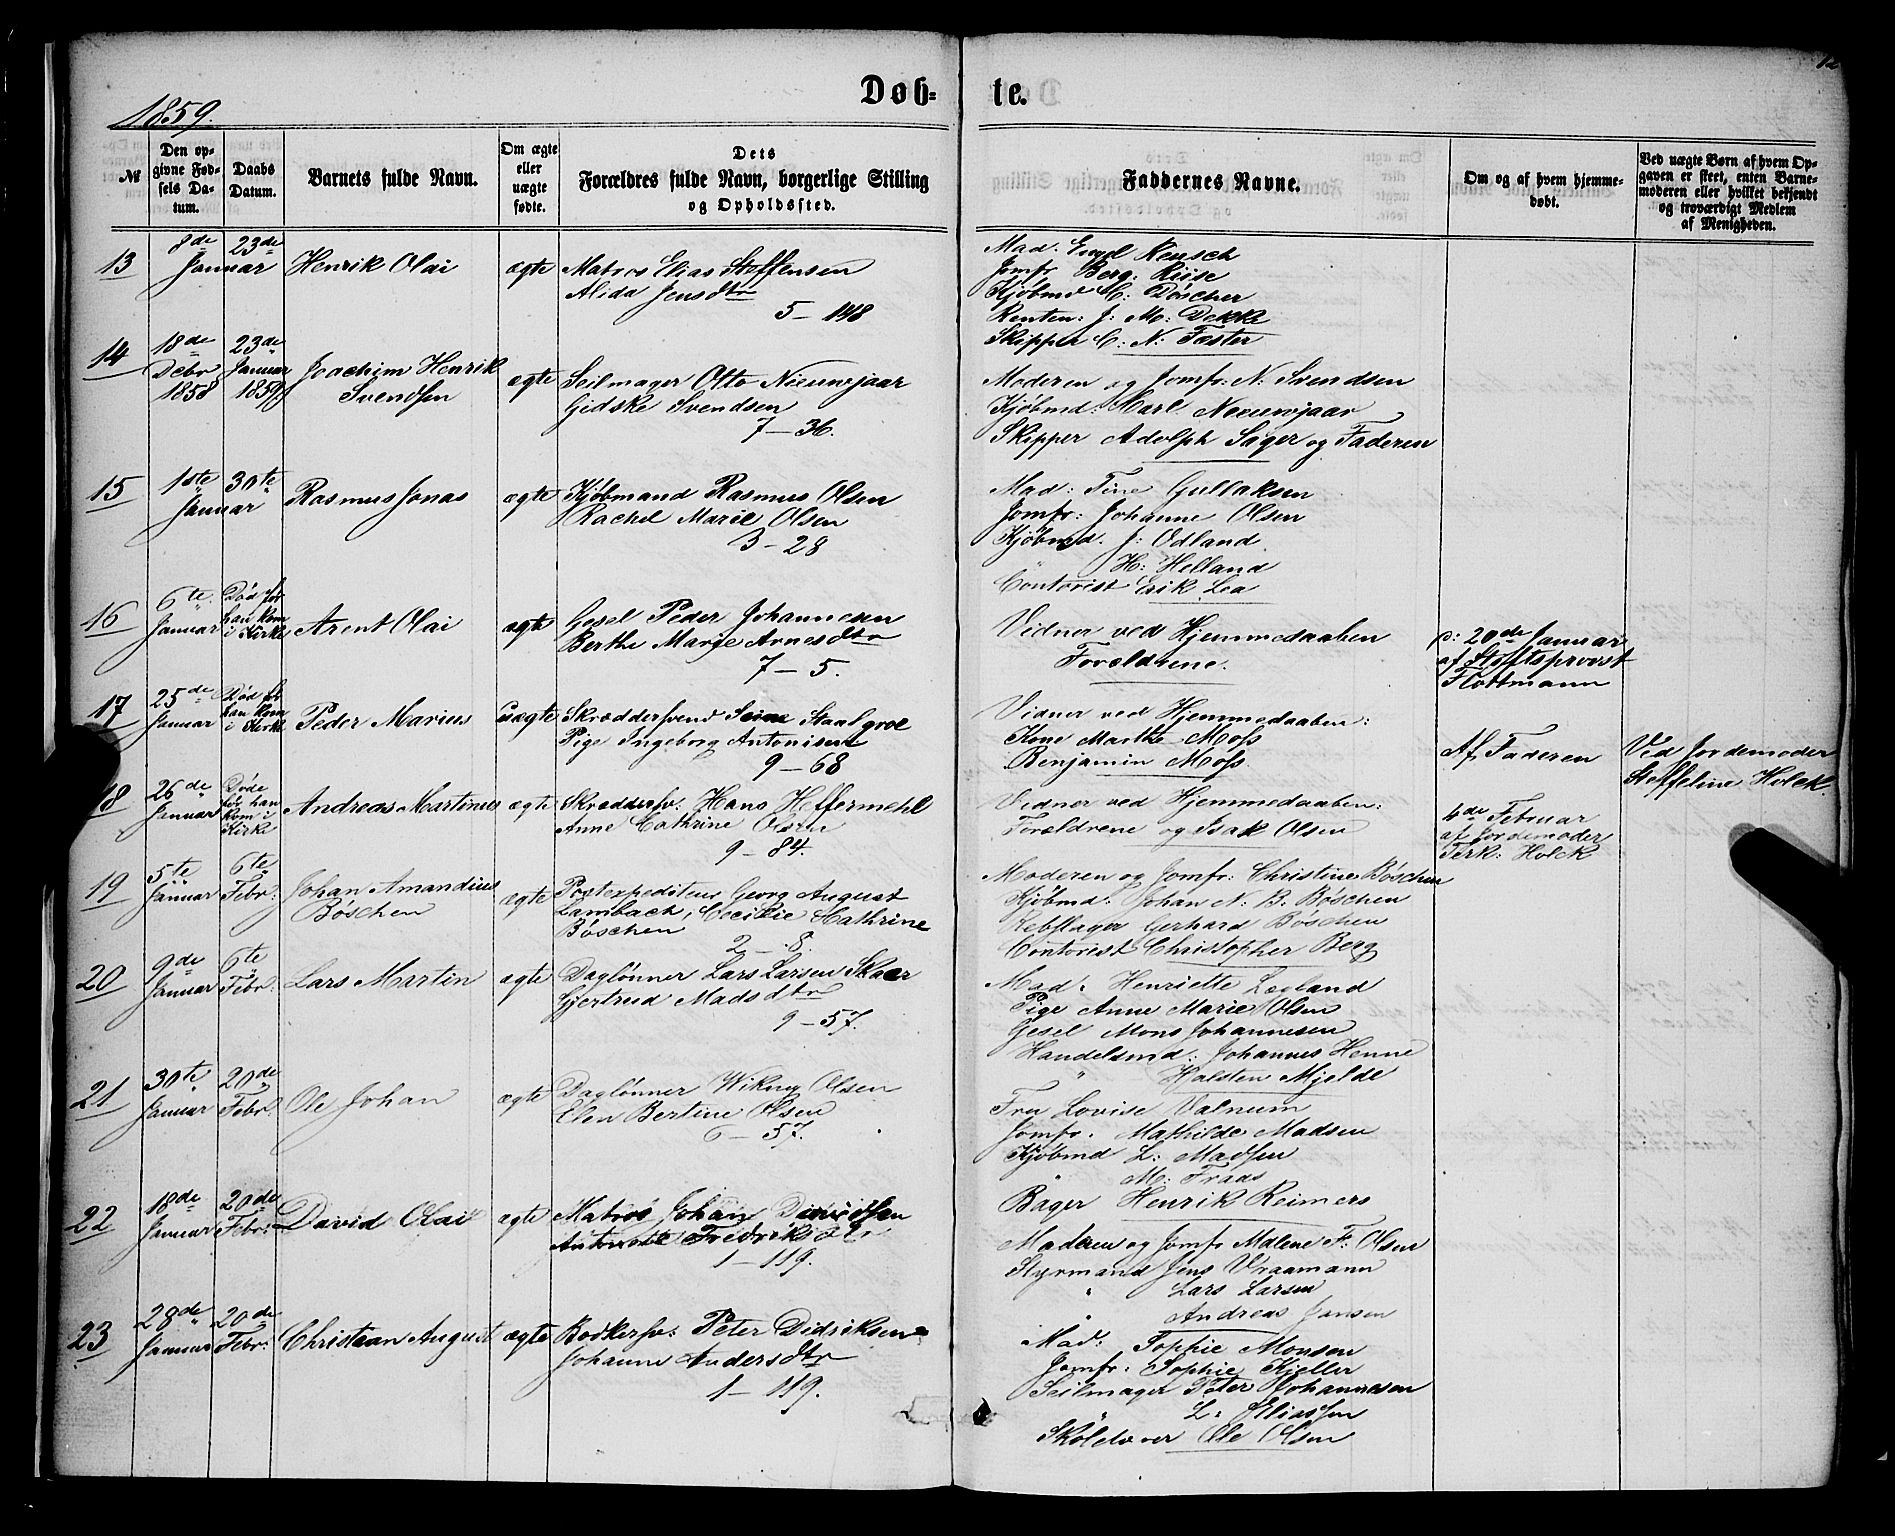 12
Døb-
te.
1859.
№
Den op-
givne Fød-
sels Da-
tum.
Daabs
Datum.
Barnets fulde Navn.
Om ægte
eller
uægte
fødte.
Dets
Forældres fulde Navn, borgerlige Stilling
og Opholdssted.
Faddernes Navne.
Om og af hvem hjemme-
døbt.
Ved uægte Børn af hvem Op-
gaven er skeet, enten Barne-
moderen eller hvilket bekjendt
og troværdigt Medlem
af Menigheden.
13
8de
Januar
23de
Henrik Olai
ægte
Matros Elias Steffensen
Alida Jensdtr
5 - 148
Mad.
Jomfr Berg: Riise
Kjøbmd C: Döscher
Renten: J: M: Dekke
Skipper C: N: Fæster
14
18de
Decbr
1858
23de
Januar
1859
Joachim Henrik
Svendsen
ægte
Seilmager Otto Nieuwejaar
Gidske Svendsen
7 - 36.
Moderen og Jomfr: N: Svendsen
Kjøbmd: Carl Nieuwejaar
Skipper Adolph Sager og Faderen
15
1ste
Januar
30te
Rasmus Jonas
ægte
Kjøbmand Rasmus Olsen
Rachel Marie Olsen
3 - 28
Mad: Tine Gullaksen
Jomfr: Johanne Olsen
Kjøbmd. J: Odland
H: Helland
Contorist Erik Lea
16
6te
Januar
Død før
han kom
i Kirke
Arent Olai
ægte
Gesel Peder Johannesen
Berthe Marie Arnesdtr
7 - 5.
Vidner ved Hjemmedaaben
Forældrene.
d: 20de Januar
af Stiftsprovst
Flottmann
17
25de
Januar
Død før
han kom
i Kirke
Peder Marius
Uægte
Skrædersvend Staalgroe
Pige Ingeborg Antonisen
9 - 68
Vidner ved Hjemmedaaben:
Kone Marthe Moss
Benjamin Moss.
Af Faderen
Ved Jordemoder
Steffeline Holck.
18
26de
Januar
Døde
før han
kom i
Kirke
Andreas Martinus
ægte
Skræddersv: Hans Heffermehl
Anne Cathrine Olsen
9 - 84.
Vidner ved Hjemmedaaben:
Forældrene og Isak Olsen
4de Februar
af Jordemoder
Holck
19
5te
Januar
6te
Febr:
Johan Amandius
Böschen
ægte
Postexpediteur Georg August
Lambach, Cecilie Cathrine
Böschen
2 - 8.
Moderen og Jomfr: Christine Böschen
Kjøbmd. Johan N. B. Böschen
Rebslager Gerhard Böschen
Contorist Christopher Berg
20
9de
Januar
6te
Febr:
Lars Martin
ægte
Daglønner Lars Larsen Skaer
Gjertrud Madsdtr
9 - 57.
Mad: Henriette Lægland
Pige Anne Marie Olsen
Gesel Mons Johannesen
Handelsmd: Johannes Henne
" Halsten Mjelde
21
30te
Januar
20de
Febr:
Ole Johan
ægte
Daglønner Wiking Olsen
Elen Bertine Olsen
6 - 57.
Fru Lovise Valnum
Jomfr. Mathilde Madsen
Kjøbmd L: Madsen
M: Traas
Bager Henrik Reimers
22
18de
Januar
20de
Febr:
David Olai
ægte
Matros Johan Davidsen
Antonette Fredriksdtr
1 - 119.
Moderen og Jomfr Malene F: Olsen
Styrmand Jens Vraamann
" Lars Larsen
" Andreas Jansen
23
28de
Januar
20de
Febr:
Christian August
ægte
Bødkersv: Peter Didriksen
Johanne Andersdtr
1 - 119.
Mad: Sophie Monsen
Jomfr: Sophie Kjeller
Seilmager Peter Johannesen
" L: Eliassen
Ole Olsen